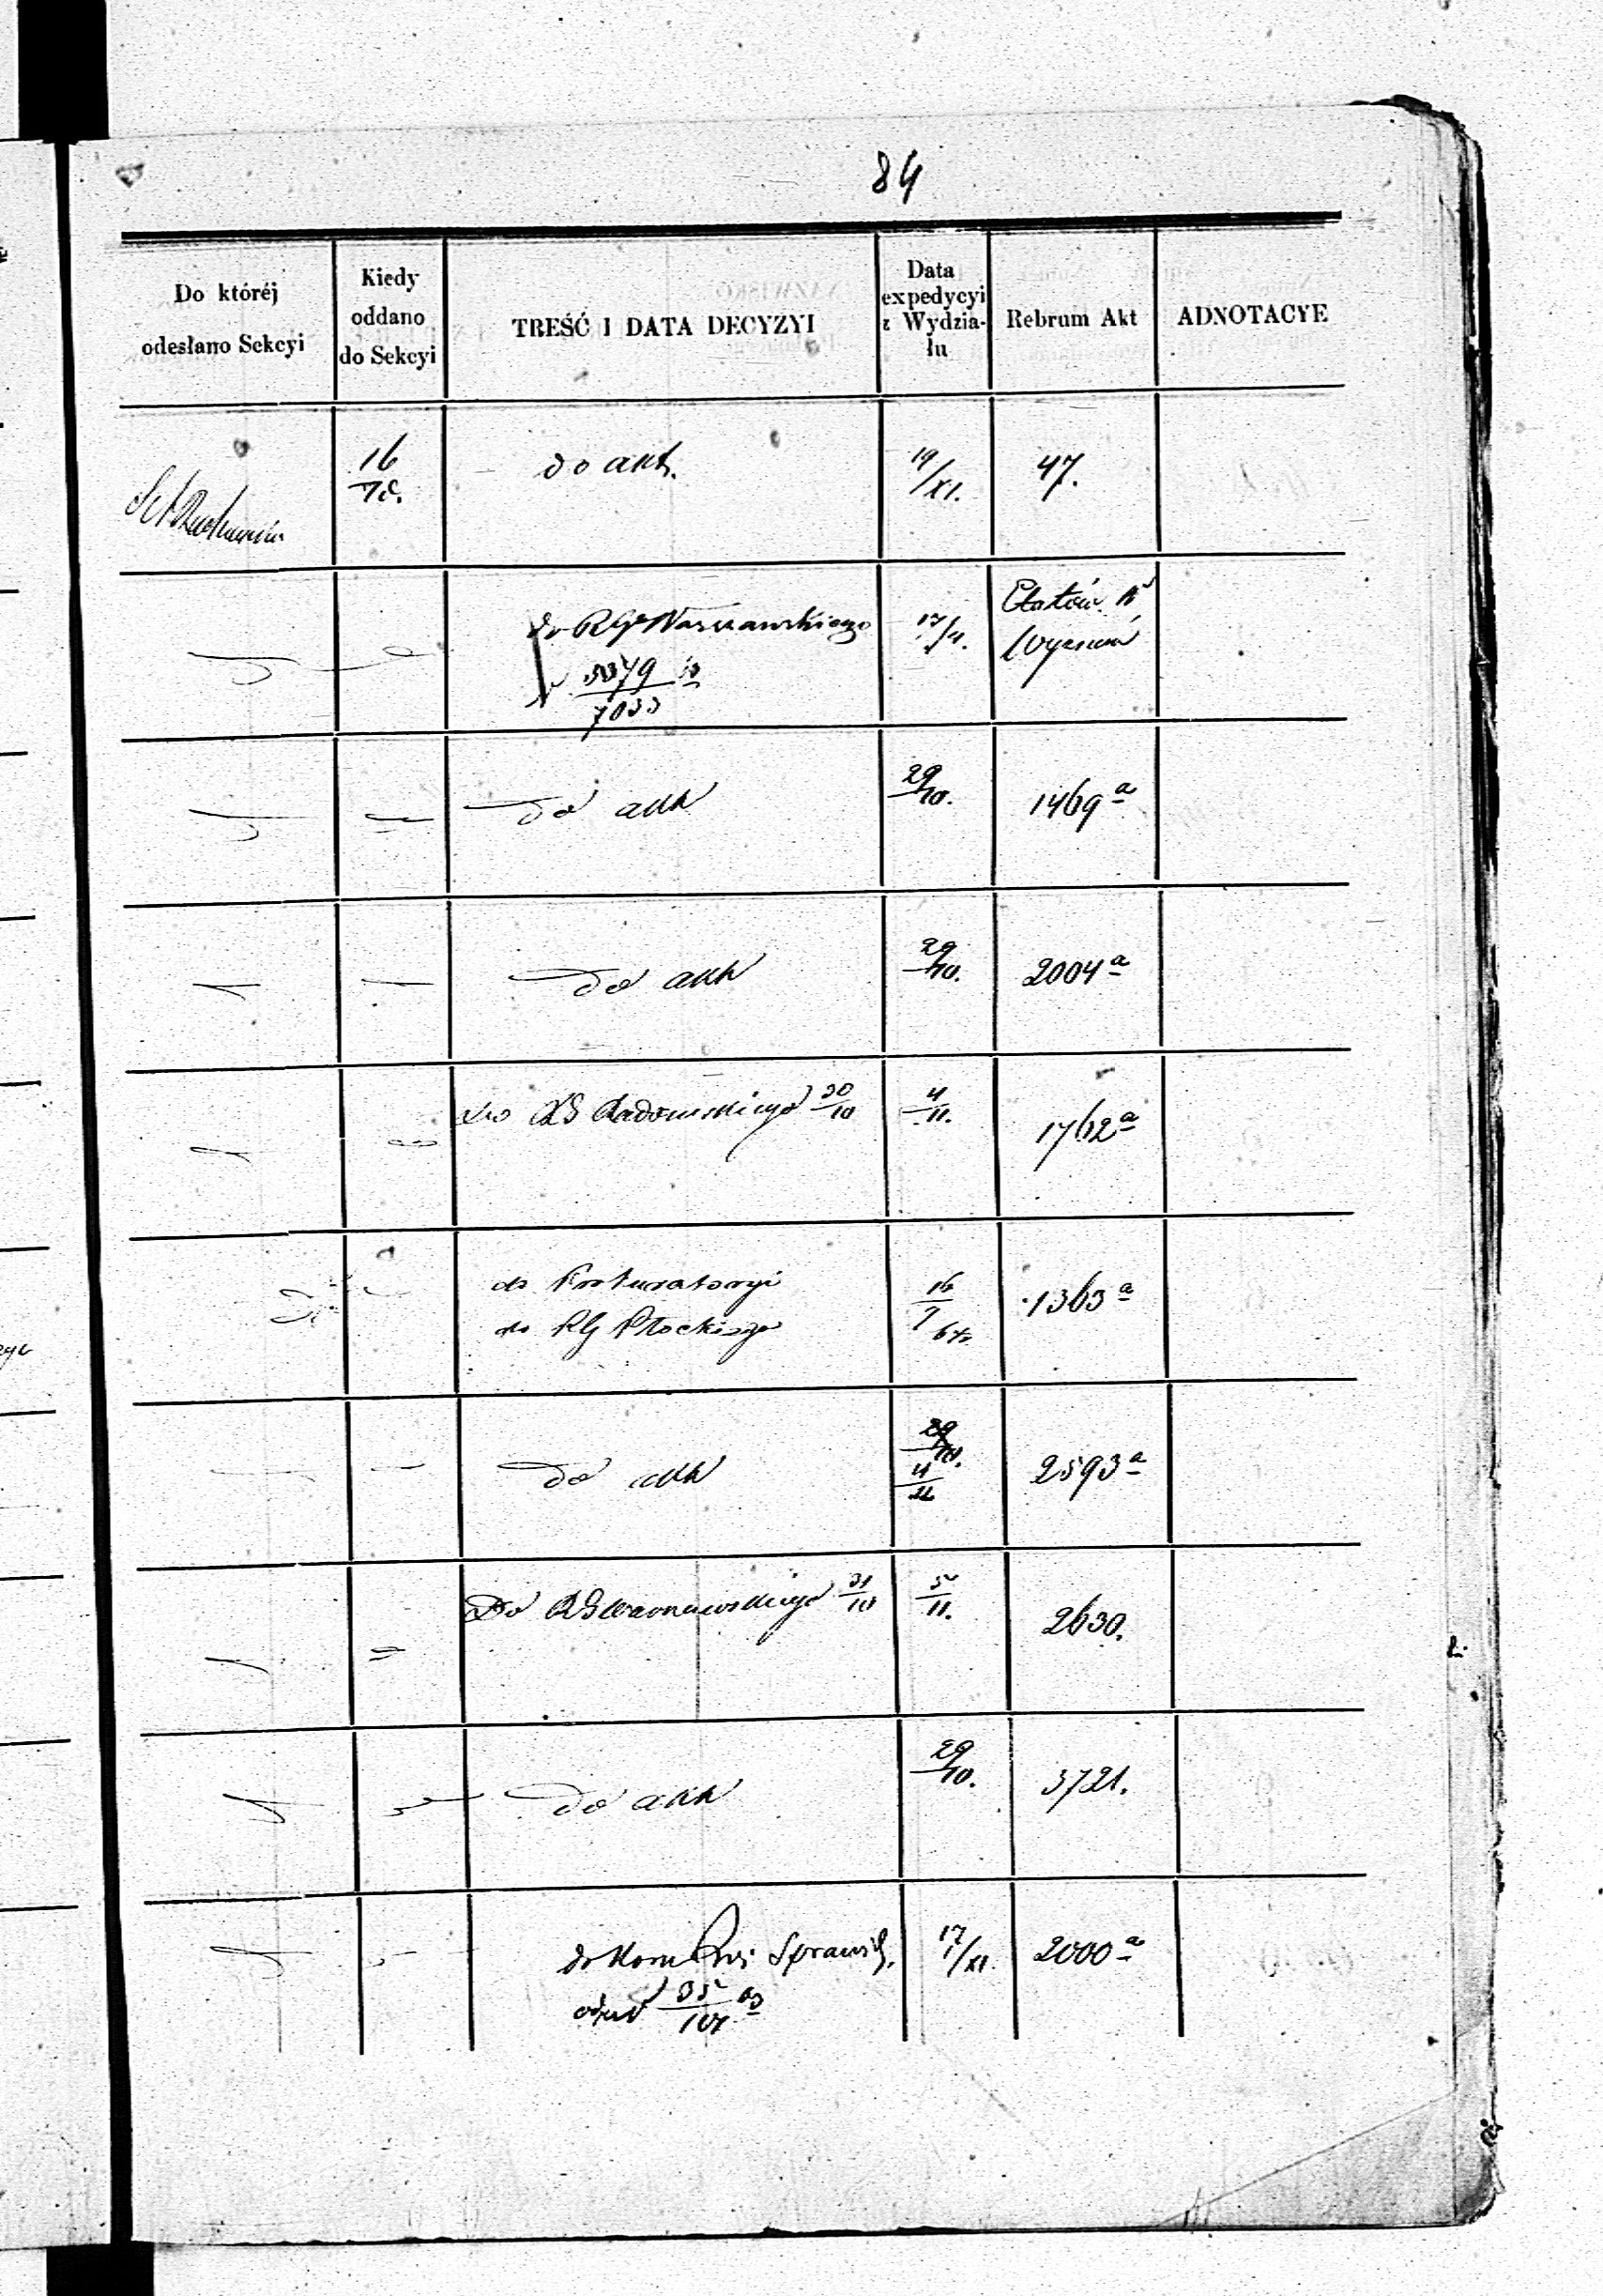 84
Do któréj
odesłano Sekcyi
Kiedy
oddano
do Sekcyi
TREŚĆ I DATA DECYZYI
Data
expedycyi
z Wydzia-
łu
Rebrum Akt
ADNOTACYE
16
10.
do akt.
19/XI.
47.
do RGo Warszawskiego
17/11.
7033
do akt
29/10.
1469 a
do akt
29/10.
2004 a
do RG Radomskiego 30/10
4/11.
1762 a
do Prokuratoryi
do RG Płockiego
16
1363 a
do akt
29/10.
4/11
2593 a
Do RG Warszawskiego 31/10
5/11.
2630.
do akt
29/10.
3721.
do Kom Spraw
17/XI.
2000 a